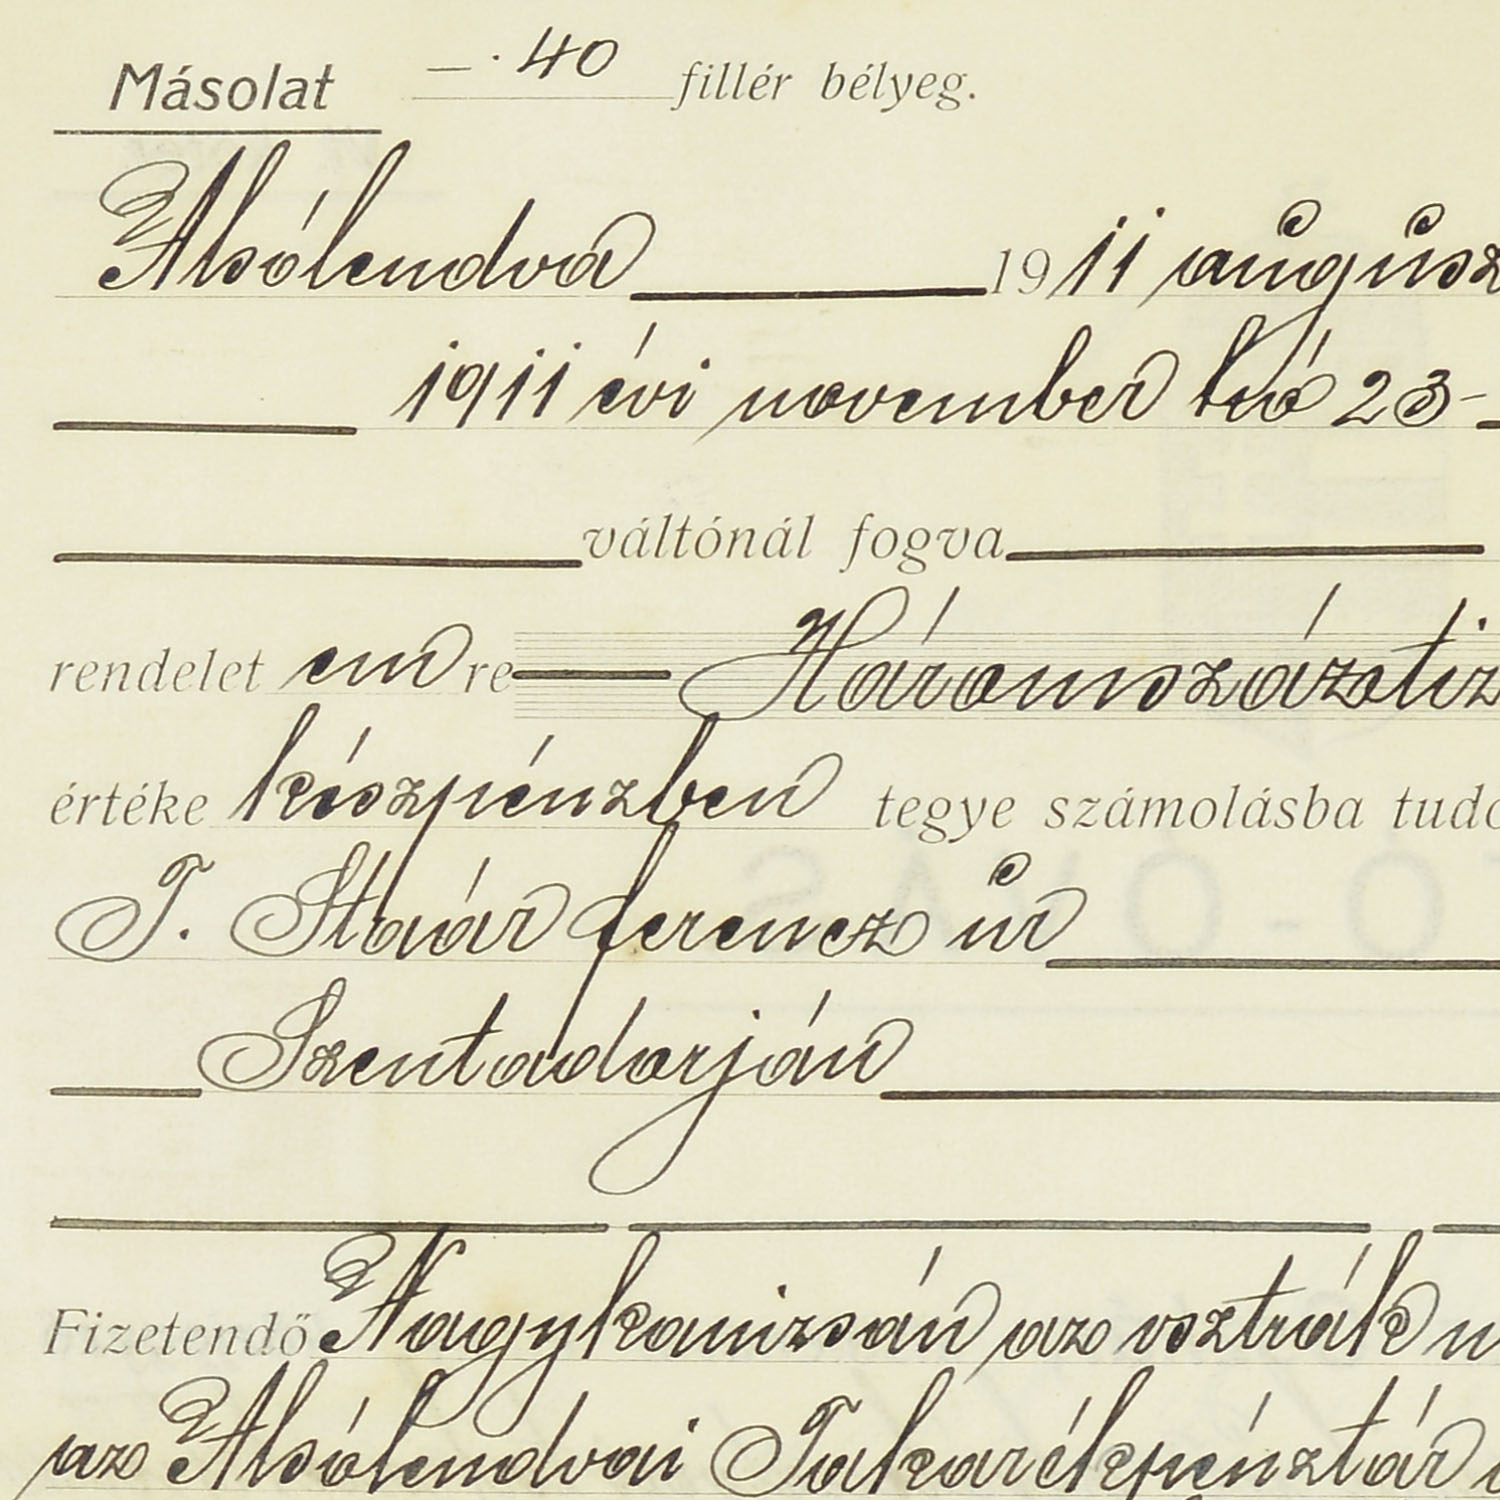 Másolat —·40 fillér bélyeg.
Alsólendva 1911 augusz
1911 évi november hó 23-
váltónál fogva
rendelet em re Háromszázötiz
értéke készpénzben tegye számolásba tudo
T. Staár ferencz úr
Szentadorján
Fizetendő Nagykanizsán az osztrák m
az Alsólendvai Takarékpénztár